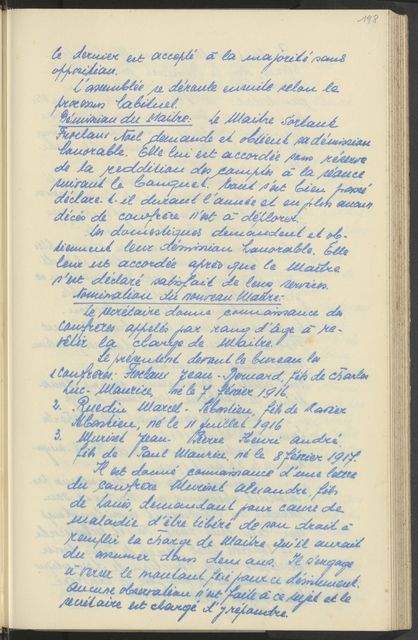 198
le dernier est accepté à la majorité sans
opposition.
L'assemblée se déroule ensuite selon le
processus habituel.
Démission du Maître: Le Maître sortant
Frochaux Noël demande et obtient sa démission
honorable. Elle lui est accordée sous réserve
de la reddition des comptes à la séance
suivant le banquet. Tout s'est bien passé
déclare-t-il durant l'année et en plus aucun
décès de confrère n'est à déplorer.
Les domestiques demandent et ob-
tiennent leur démission honorable. Elle
leur est accordée après que le Maître
s'est déclaré satisfait de leurs services.
Nomination du nouveau Maître:
Le secrétaire donne connaissance des
confrères appelés par rang d'âge à re-
vêtir la charge de Maître.
Se présentent devant le bureau les
1 confrères: Jean-Bernard, fils de Charles
Luc-Maurice, né le 7 février 1916
2. Ruedin Marcel-Sébastien, fils de Xavier
Sébastien, né le 11 juillet 1916
3. Muriset Jean-Pierre Henri André
fils de Paul Maurice, né le 8 février 1917.
Il est donné connaissance d'une lettre
du confrère Muriset Alexandre, fils
de Louis, demandant pour cause de
maladie d'être libéré de son droit à
remplir la charge de Maître qu'il aurait
dû assumer dans deux ans. Il s'engage
à verser le montant fixé pour ce désistement.
Aucune observation n'est faite à ce sujet et le
secrétaire est chargé d'y répondre.